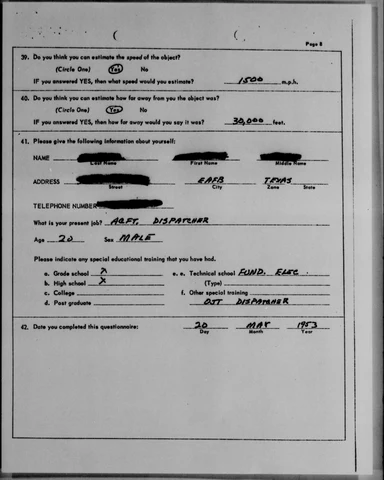 Page 8
39. Do you think you can estimate the speed of the object?
(Circle One) Yes No
IF you answered YES, then what speed would you estimate? 1500 m.p.h.
40. Do you think you can estimate how far away from you the object was?
(Circle One) Yes No
IF you answered YES, then how far away would you say it was? 30,000 feet.
41. Please give the following information about yourself:
NAME
Last Name First Name Middle Name
ADDRESS EAFB TEXAS
Street City Zone State
TELEPHONE NUMBER
What is your present job? ACFT. DISPATCHER
Age 20 Sex MALE
Please indicate any special educational training that you have had.
a. Grade school X e. e. Technical school FUND. ELEC.
b. High school X (Type)
c. College f. Other special training
d. Post graduate OJT DISPATCHER
42. Date you completed this questionnaire: 20 MAY 1953
Day Month Year